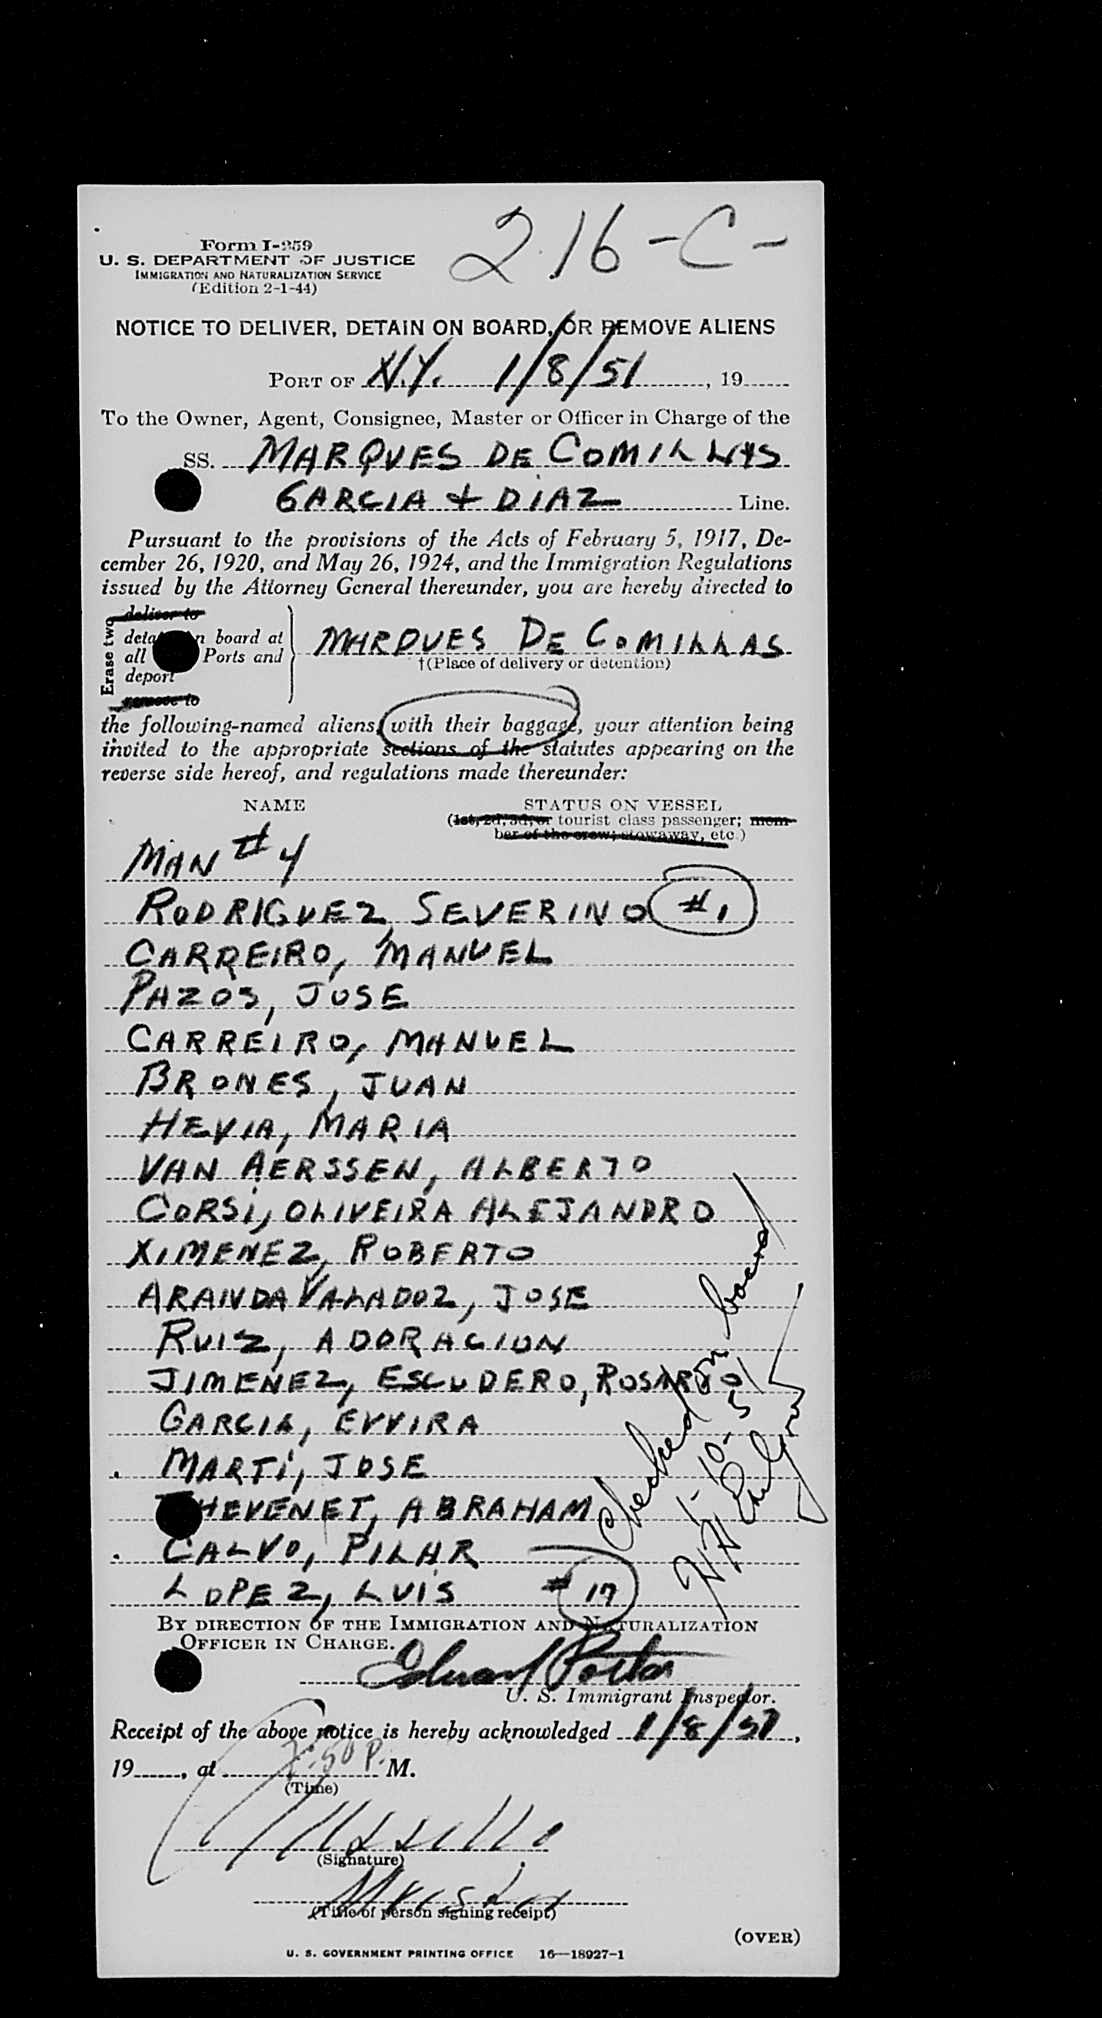 216-C-
Form I-259
U. S. DEPARTMENT OF JUSTICE
IMMIGRATION AND NATURALIZATION SERVICE
(Edition 2-1-44)
NOTICE TO DELIVER, DETAIN ON BOARD, OR REMOVE ALIENS
PORT OF N.Y. 1/8/51, 19
To the Owner, Agent, Consignee, Master or Officer in Charge of the
SS. MARQUES DE COMILLAS
GARCIA + DIAZ Line.
Pursuant to the provisions of the Acts of February 5, 1917, De-
cember 26, 1920, and May 26, 1924, and the Immigration Regulations
issued by the Attorney General thereunder, you are hereby directed to
Erase two
deliver to
detain on board at
all Ports and
deport
remove to
MARQUES DE COMILLAS
†(Place of delivery or detention)
the following-named aliens, with their baggage, your attention being
invited to the appropriate sections of the statutes appearing on the
reverse side hereof, and regulations made thereunder:
NAME STATUS ON VESSEL
(1st, 2d, 3d, or tourist class passenger; mem-
ber of the crew; stowaway, etc.)
MAN #4
RODRIGUEZ, SEVERINO #1
CARREIRO, MANUEL
PAZOS, JOSE
CARREIRO, MANUEL
BRONES, JUAN
HEVIA, MARIA
VAN AERSSEN, ALBERTO
CORSI, OLIVEIRA ALEJANDRO
XIMENEZ, ROBERTO
ARANDA VALADOZ, JOSE
RUIZ, ADORACION
JIMENEZ, ESCUDERO, ROSARIO
GARCIA, EVVIRA
MARTI, JOSE
HEVENET, ABRAHAM
CALVO, PILAR
LOPEZ, LUIS #17
Checked on board
1-10-51
BY DIRECTION OF THE IMMIGRATION AND NATURALIZATION
OFFICER IN CHARGE.
Edward Porter
U. S. Immigrant Inspector.
Receipt of the above notice is hereby acknowledged 1/8/51,
19, at 7:50 P. M.
(Time)
(Signature)
(Title of person signing receipt)
(OVER)
U. S. GOVERNMENT PRINTING OFFICE 16—18927-1